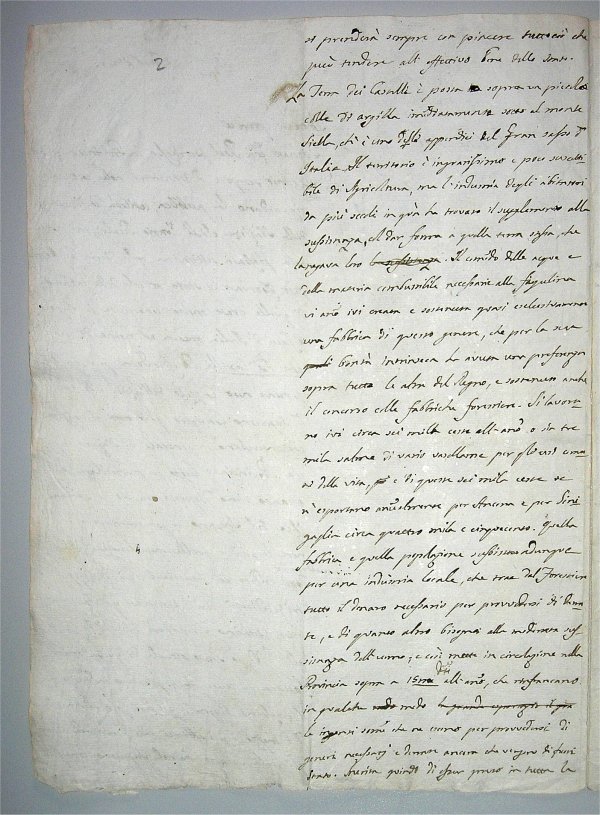 2
si prenderà sempre con piacere tutto ciò che
può tendere all' effettivo bene dello Stato.
La Terra dei Castelli è posta sopra un piccolo
colle di argilla immediatamente sotto al monte
Siella, ch' è uno degli appendici del Gran sasso d'
Italia. Il territorio è ingratissimo e poco suscetti
bile di Agricoltura, ma l' industria degli abitatori
da più secoli in quà ha trovato il supplemento alla
sussistenza, col dar forma a quella terra stessa, che
la negava loro. Il comodo delle acque e
della materia combustibile necessarie alla figulina
vi anno ivi creata e sostenuta quasi esclusivamente
una fabbrica di questo genere, che per la sua
bontà intrinseca ha avuta una preferenza
sopra tutte le altre del Regno, e sostenuto anche
il concorso colle fabbriche forestiere. Si lavora-
no ivi circa sei mila ceste all' anno o sia tre
mila salme di vario vasellame per gli usi comu
ni della vita, e di queste sei mila ceste se
n' esportano annualmente per Ancona e per Sini
gaglia circa quattro mila e cinquecento. Quella
fabbrica e quella popolazione sussistono adunque
per una industria locale, che trae dal Forestiere
tutto il denaro necessario per provvedersi di derra
te, e di quanto altro bisogna alla moderata sus
sistenza dell' uomo, e così mette in circolazione nella
Provincia sopra a 15m all' anno, che rinfrancano
in qualche modo
le somme che ne escono per provvedersi di
generi necessarj e derrate ancora che vengono di fuori
Stato. Merita quindi di esser preso in tutta la